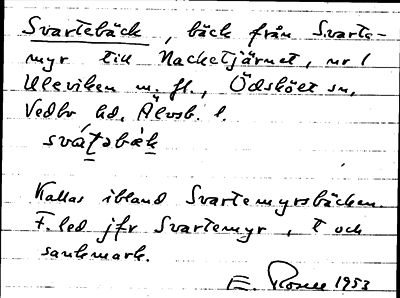 Svartebäck, bäck från Svarte-
myr till Nacketjärnet, nr 1
Uleviken m. fl., Ödskölt sn,
Vedbo hd, Älvsb. l.
svát̠əbàk̠
Kallas ibland Svartemyrsbäcken.
F. led jfr Svartemyr, t och
sankmark.
E. Rosell 1953